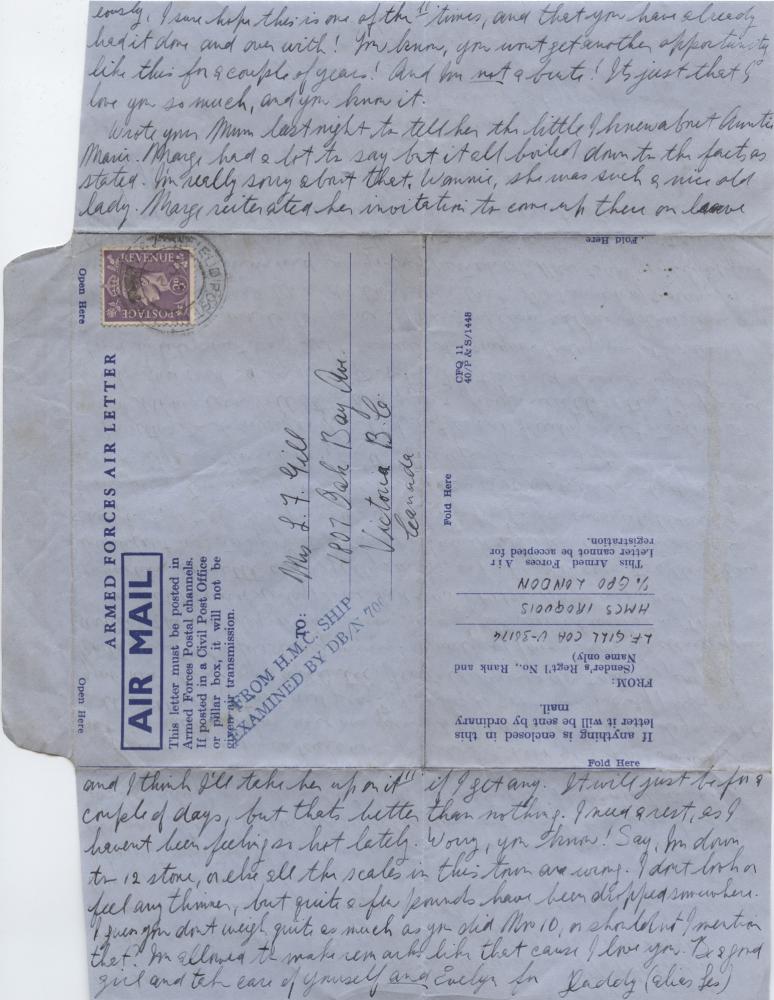 eously, I sure hope this is one of the "times, and that you have already
had it done and over with! You know, you wont get another opportunity
like this for a couple of years! And Im not a brute! Its just that I
love you so much, and you know it.
Wrote your Mum last night to tell her the little I knew about Auntie
Marie. Marge had a lot to say but it all boiled down to the facts as
stated. Im really sorry about that, she was such a nice old
lady. Marge reiterated her invitation to come up there on leave
Open Here
REVENUE
3D
POSTAGE
ARMED FORCES AIR LETTER
AIR MAIL
This letter must be posted in
Armed Forces Postal channels.
If posted in a Civil Post Office
or pillar box, it will not be
given air transmission.
Open Here
TO:
Mrs L. F. Gill
1807 Oak Bay Ave.
Victoria B.C.
Canada
FROM H.M.C. SHIP
EXAMINED BY DB/N 70
Fold Here
CFQ 11
40/P & S/1448
Fold Here
If anything is enclosed in this
letter it will be sent by ordinary
mail.
FROM:
(Sender's Regt'l No., Rank and
Name only)
LF GILL COA V-36174
HMCS IROQUOIS
% GPO LONDON
This Armed Forces Air
Letter cannot be accepted for
registration.
Fold Here
and I think I'll take her up on it "if I get any. It will just be for a
couple of days, but thats better than nothing. I need a rest, as I
havent been feeling so hot lately. Worry, you know! Say, Im down
to 12 stone, or else all the scales in this town are wrong. I dont look or
feel any thinner, but quite a few pounds have been dropped somewhere.
I guess you dont weigh quite as much as you did Nov 10, or should not I mention
that? Im allowed to make remarks like that cause I love you. Be a good
girl and take care of yourself and Evelyn for Daddy (alias Les)